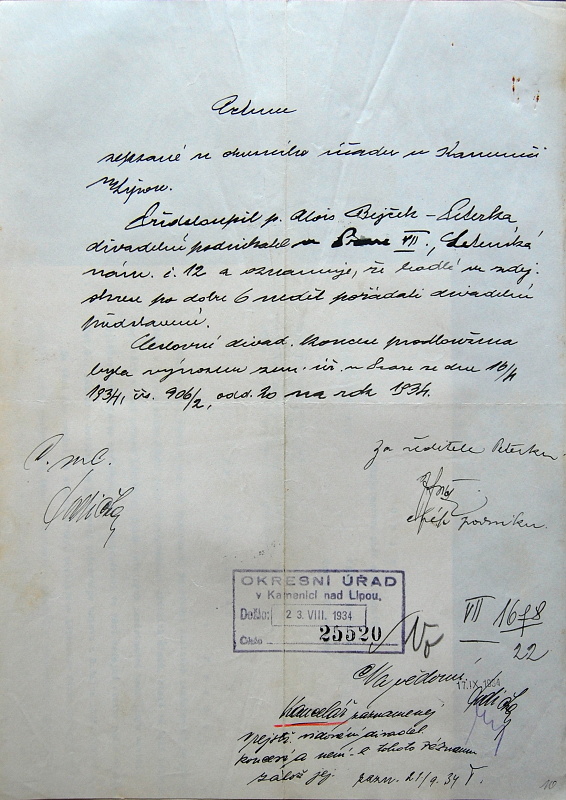 sepsané u okresního úřadu v Kamenici
n/Lipou.
Předstoupil p. Alois Bejček - Peterka
divadelní podnikatel v Praze VII., Letenská
nám. č. 12 a oznamuje, že hodlá ve zdej.
okrese po dobu 6 neděl pořádati divadelní
představení.
Cestovní divad. koncese prodloužena
byla výnosem zem. úř. v Praze ze dne 16/4
1934, čís. 906/2, odd. 20 na rok 1934.
Za ředitele Peterku
podniku.
OKRESNÍ ÚŘAD
v Kamenici nad Lipou,
Došlo: 23. VIII. 1934
Číslo 25520
VII 1678
22
Na vědomí.
17. IX. 1934
Kancelář zaznamenej
divadel.
koncesí a není-li tohoto záznamu
založ jej. zazn. 21/9. 34